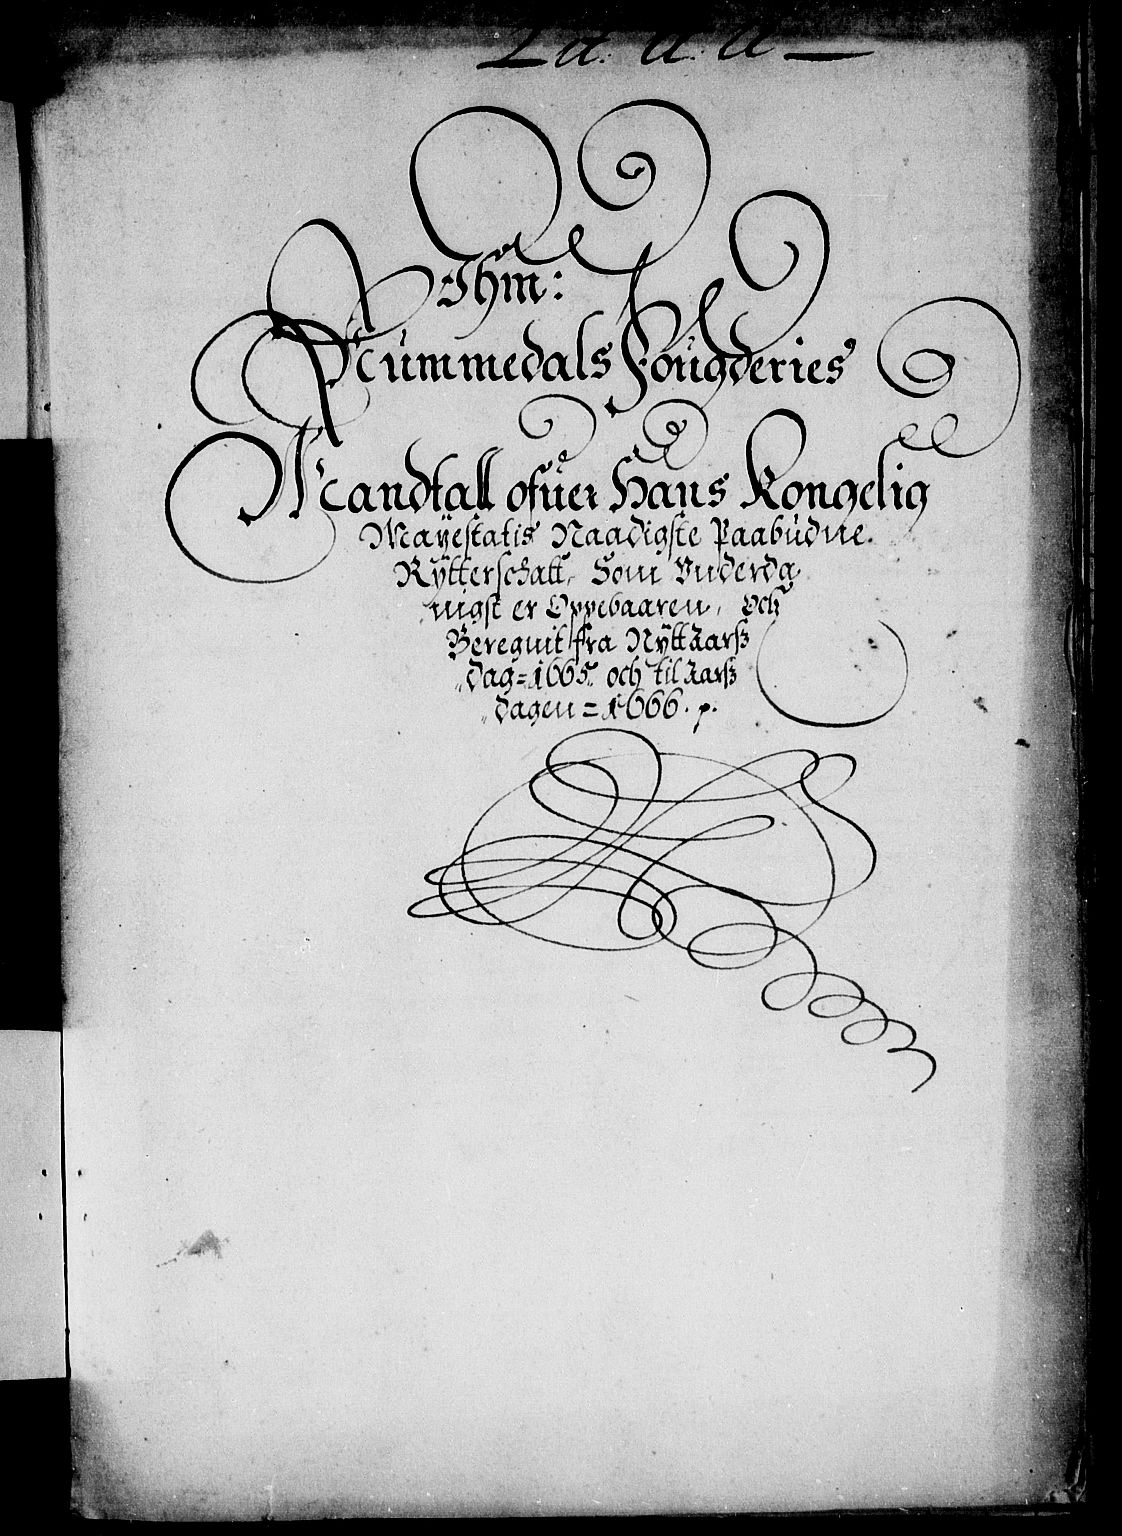 Lit. A. A
Ihm:
Nummedals Fougderies
Mandtall ofuer Hans Kongelig
Mayestatis Naadigste Paabudne.
Rytterschatt, Som Vnderda
nigst er Oppebaaren, och
Bereguit fra NyttAarß
dag=1665. och til Aarß
dagen=1666. p.